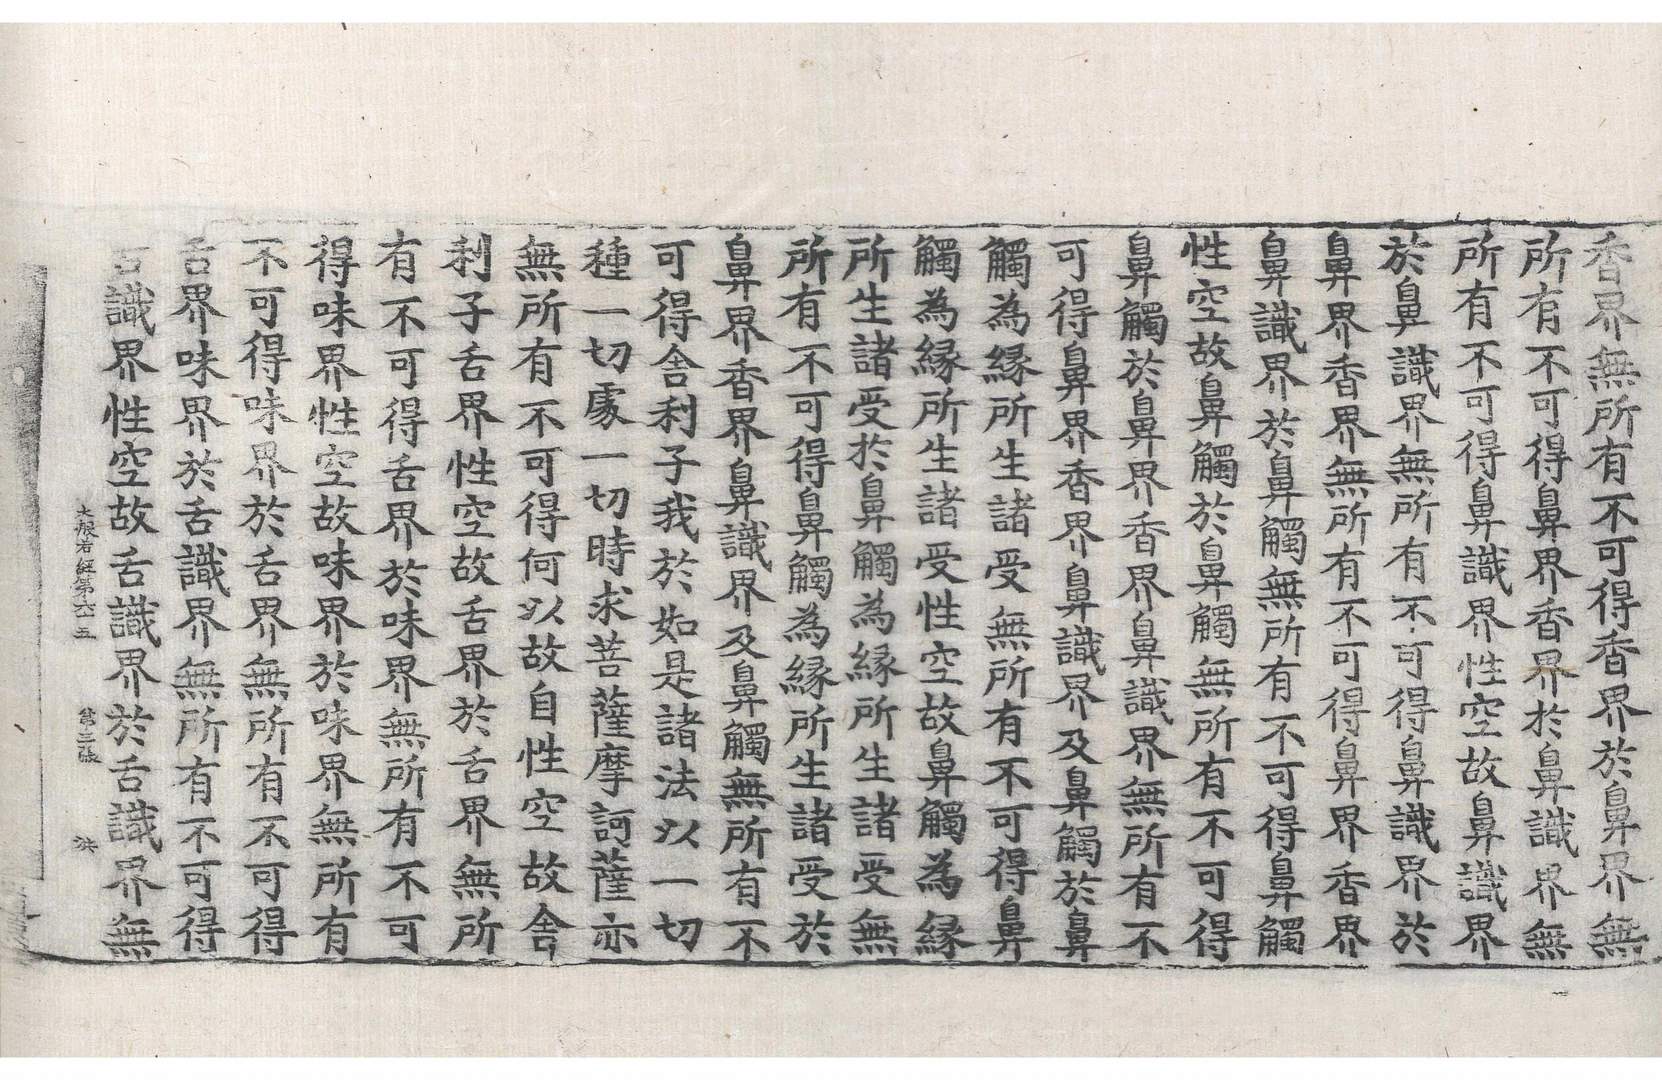 香界無所有不可得香界於鼻界無
所有不可得鼻界香界於鼻識界無
所有不可得鼻識界性空故鼻識界
於鼻識界無所有不可得鼻識界於
鼻界香界無所有不可得鼻界香界
鼻識界於鼻觸無所有不可得鼻觸
性空故鼻觸於鼻觸無所有不可得
鼻觸於鼻界香界鼻識界無所有不
可得鼻界香界鼻識界及鼻觸於鼻
觸為緣所生諸受無所有不可得鼻
觸為緣所生諸受性空故鼻觸為緣
所生諸受於鼻觸為緣所生諸受無
所有不可得鼻觸為緣所生諸受於
鼻界香界鼻識界及鼻觸無所有不
可得舍利子我於如是諸法以一切
種一切處一切時求菩薩摩訶薩亦
無所有不可得何以故自性空故舍
利子舌界性空故舌界於舌界無所
有不可得舌界於味界無所有不可
得味界性空故味界於味界無所有
不可得味界於舌界無所有不可得
舌界味界於舌識界無所有不可得
舌識界性空故舌識界於舌識界無
大般若經第六十五 第三張 洪